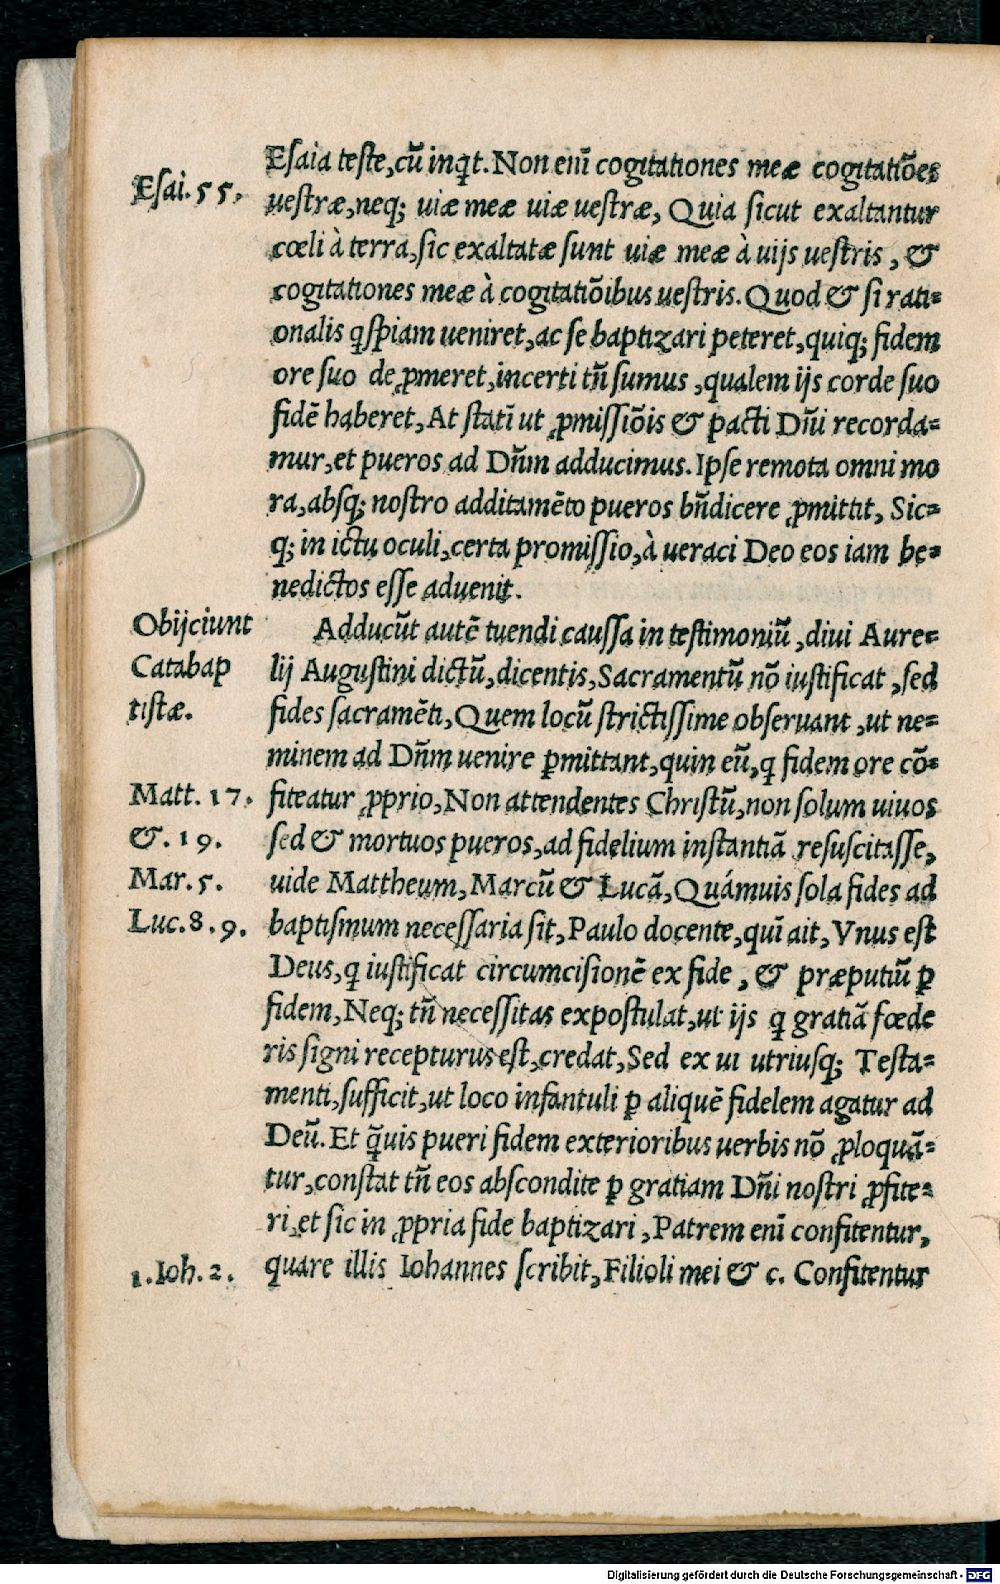 Esaia teste,cū inq̃t. Non enī cogitationes meæ cogitatiões
Esai. 55.
uestræ,neq; uiæ meæ uiæ uestræ, Quia sicut exaltantur
cœli à terra,sic exaltatæ sunt uiæ meæ à uijs uestris, &
cogitationes meæ à cogitatiõibus uestris. Quod & si rati=
onalis qspiam ueniret,ac se baptizari peteret,quiq; fidem
ore suo de ꝓmeret,incerti tñ sumus,qualem ijs corde suo
fidē haberet,At statī ut ꝓmissiõis & pacti Dñi recorda=
mur,et pueros ad Dñm adducimus. Ipse remota omni mo
ra,absq; nostro additamēto pueros bñdicere ꝓmittit, Sic=
q; in ictu oculi,certa promissio,à ueraci Deo eos iam be=
nedictos esse aduenit.
Obijciunt
Catabap
tistæ.
Adducūt autē tuendi caussa in testimoniū,diui Aure=
lij Augustini dictū,dicentis,Sacramentū nō iustificat,sed
fides sacramēti,Quem locū strictissime obseruant,ut ne=
minem ad Dñm uenire ꝑmittant,quin eū,q fidem ore cō=
Matt. 17.
&. 19.
Mar. 5.
Luc. 8. 9.
fiteatur ꝓprio,Non attendentes Christū,non solum uiuos
sed & mortuos pueros,ad fidelium instantiā resuscitasse,
uide Mattheum,Marcū & Lucā,Quámuis sola fides ad
baptismum necessaria sit,Paulo docente,quī ait,Vnus est
Deus,q iustificat circumcisionē ex fide, & præputiū ꝑ
fidem,Neq; tñ necessitas expostulat,ut ijs q gratiā fœde
ris signi recepturus est,credat,Sed ex ui utriusq; Testa=
menti,sufficit,ut loco infantuli ꝑ aliquē fidelem agatur ad
Deū. Et q̃uis pueri fidem exterioribus uerbis nō ꝓloquā=
tur,constat tñ eos abscondite ꝑ gratiam Dñi nostri ꝓfite=
ri,et sic in ꝓpria fide baptizari,Patrem enī confitentur,
1. Ioh. 2.
quare illis Iohannes scribit,Filioli mei & c. Confitentur
Digitalisierung gefördert durch die Deutsche Forschungsgemeinschaft - DFG